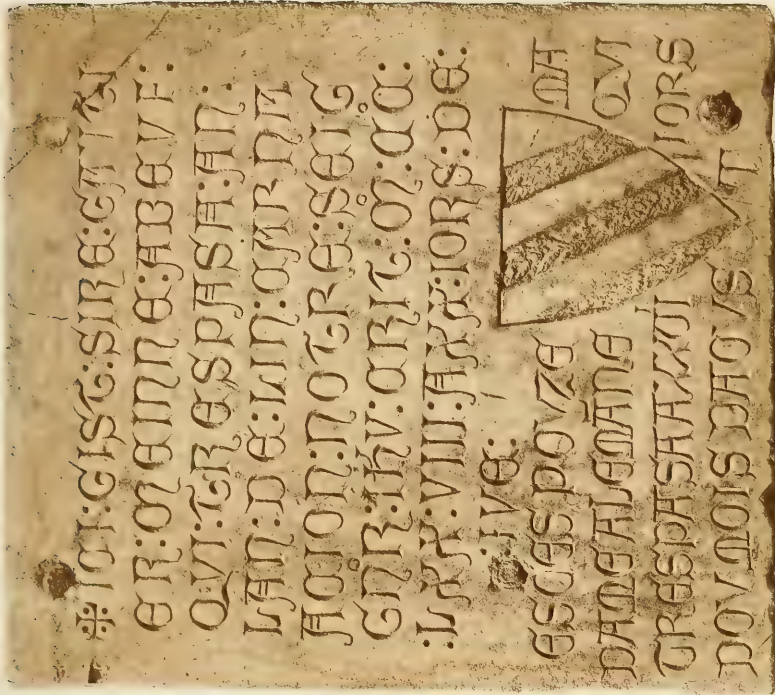 ✠ ICI:GIST:SIRE:GAUTI
ER:MEINNE:ABEVF:
QVI:TRESPASA:AN:
LAN:DE:LIN:CARNA
ACION:NOTRE:SEIG
GNR:IhV:CRIT:M:CC:
:LXX:VIII:AXX:IORS:DE:
IVE:
ESCES POVZE DA
DAME ALEMANE QVI
TRESPASA A XVI IORS
DOV MOIS DAOVS T